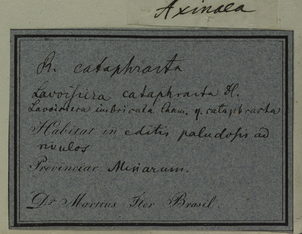 Axinaea
R. cataphracta
Lavoisiera cataphracta DC.
Lavoisiera imbricata Cham. γ. cataphracta
Habitat in editis, paludosis ad
rivulos
Provinciae Minarum.
Dr Martius Iter Brasil.